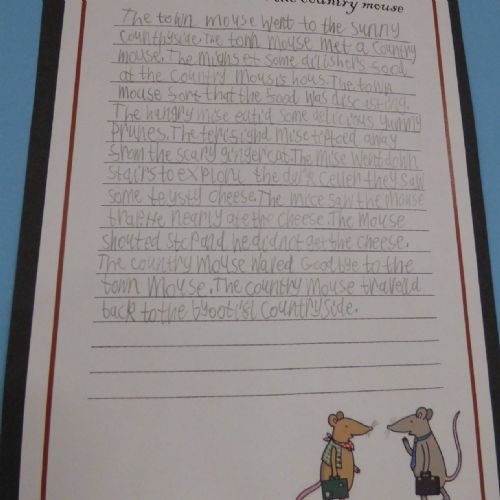 the country mouse
The town mouse went to the sunny
countryside. The town mouse met a country
mouse. The some food
at the country hous. The town
mouse that the food was
The mise some delicious yummy
prunes. The mise tiptoed away
from the scary ginger cat. The mise went down
stairs to explore the darc celler they saw
some cheese. The mice saw the mouse
trap He nearly ate the cheese. The mouse
shouted Stop and he did not get the cheese.
The country Mouse waved Goodbye to the
town Mouse. The country Mouse travelld
back to the country side.